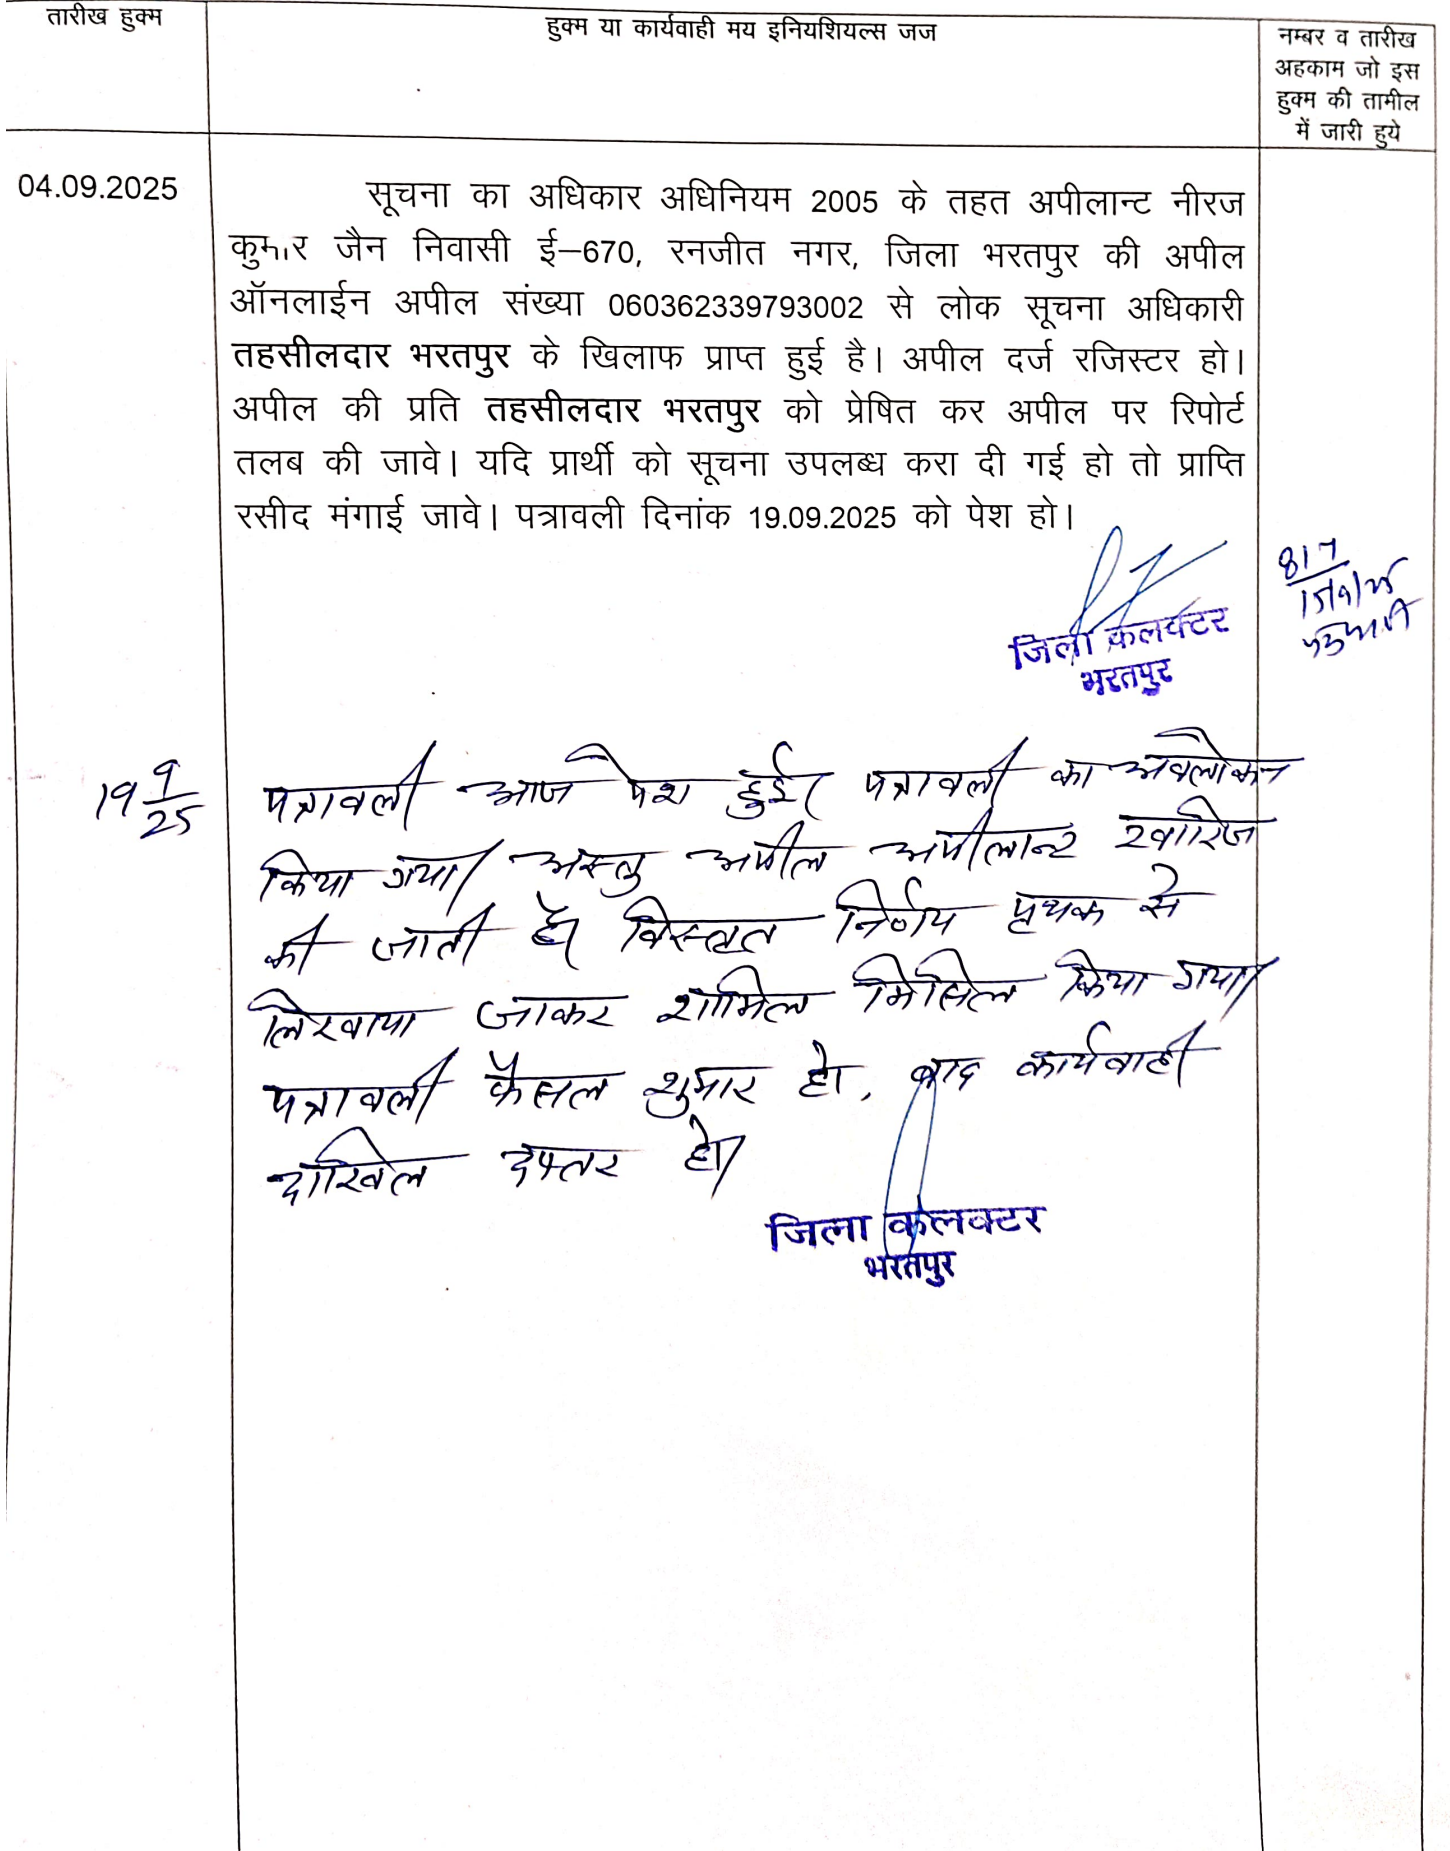 तारीख हुक्म
हुक्म या कार्यवाही मय इनियशियल्स जज
नम्बर व तारीख
अहकाम जो इस
हुक्म की तामील
में जारी हुये
04.09.2025
सूचना का अधिकार अधिनियम 2005 के तहत अपीलान्ट नीरज
कुमार जैन निवासी ई–670, रनजीत नगर, जिला भरतपुर की अपील
ऑनलाईन अपील संख्या 060362339793002 से लोक सूचना अधिकारी
तहसीलदार भरतपुर के खिलाफ प्राप्त हुई है। अपील दर्ज रजिस्टर हो।
अपील की प्रति तहसीलदार भरतपुर को प्रेषित कर अपील पर रिपोर्ट
तलब की जावे। यदि प्रार्थी को सूचना उपलब्ध करा दी गई हो तो प्राप्ति
रसीद मंगाई जावे। पत्रावली दिनांक 19.09.2025 को पेश हो।
जिला कलक्टर
भरतपुर
19 9/25
पत्रावली आज पेश हुई। पत्रावली का अवलोकन
किया गया। अस्तु अपील अपीलान्ट खारिज
की जाती है। विस्तृत निर्णय पृथक से
लिखवाया जाकर शामिल मिसिल किया गया।
पत्रावली फैसल शुमार हो, बाद कार्यवाही
दाखिल दफ्तर हो।
जिला कलक्टर
भरतपुर